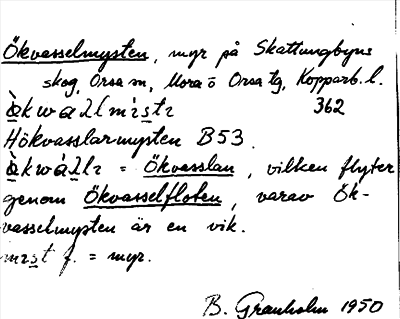 Ökvasselmysten, myr på Skattungbyns
skog, Orsa sn, Mora o Orsa tg, Kopparb. l.
362
Hökvasslarmysten B53.
= Ökvasslan, vilken flyter
genom Ökvasselfloten, varav Ök-
vasselmysten är en vik.
f. = myr.
B. Granholm 1950